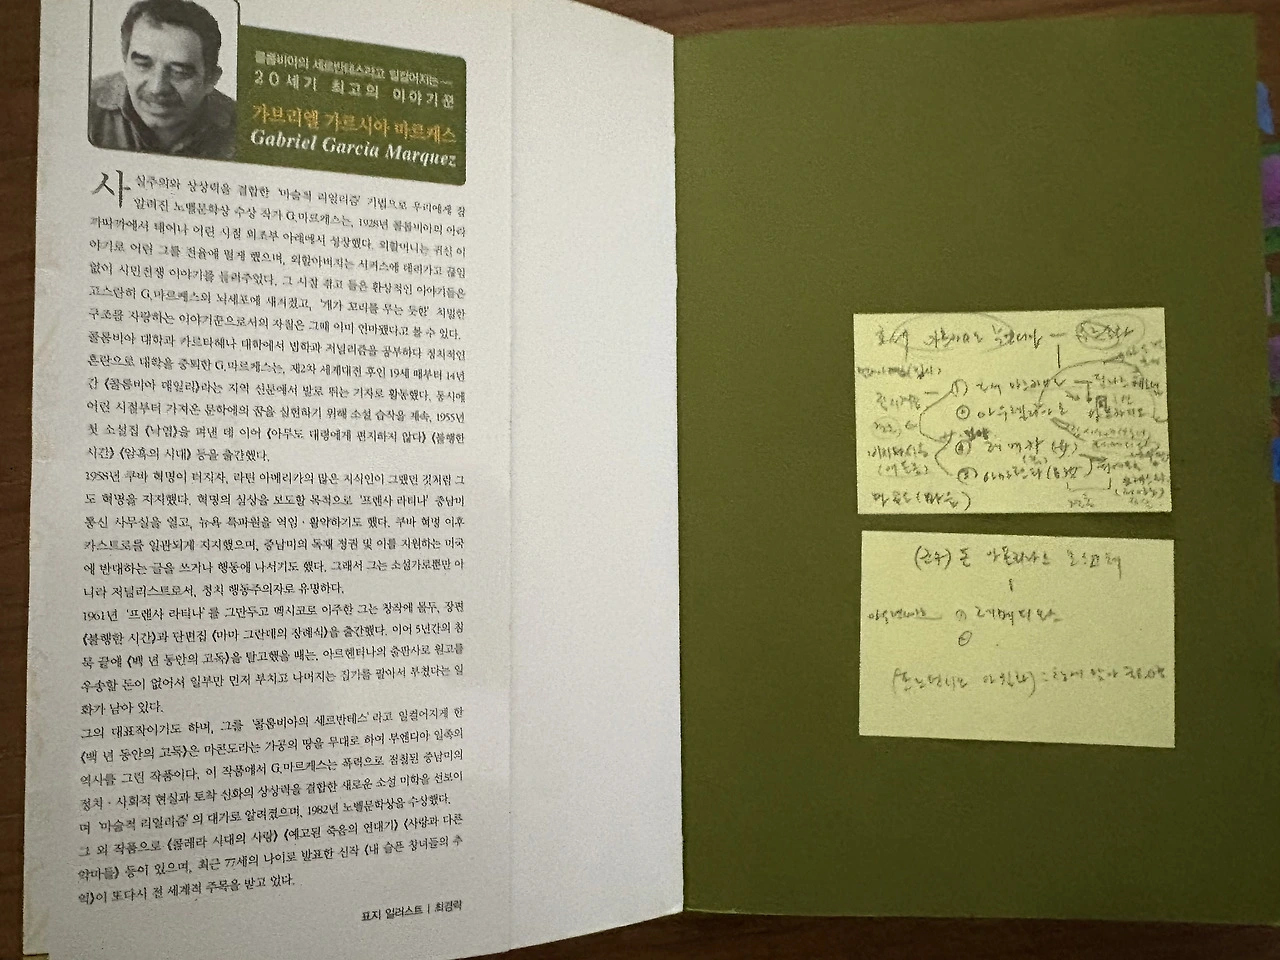 콜롬비아의 세르반테스라고 일컬어지는—
20세기 최고의 이야기꾼
가브리엘 가르시아 마르케스
Gabriel Garcia Marquez
사실주의와 상상력을 결합한 '마술적 리얼리즘' 기법으로 우리에게 잘
알려진 노벨문학상 수상 작가 G.마르케스는, 1928년 콜롬비아의 아라
까따까에서 태어나 어린 시절 외조부 아래에서 성장했다. 외할머니는 귀신 이
야기로 어린 그를 전율에 떨게 했으며, 외할아버지는 서커스에 데리가고 끊임
없이 시민전쟁 이야기를 들려주었다. 그 시절 겪고 들은 환상적인 이야기들은
고스란히 G.마르케스의 뇌세포에 새겨졌고, '개가 꼬리를 무는 듯한' 치밀한
구조를 자랑하는 이야기꾼으로서의 자질은 그때 이미 연마됐다고 볼 수 있다.
콜롬비아 대학과 카르타헤나 대학에서 법학과 저널리즘을 공부하다 정치적인
혼란으로 대학을 중퇴한 G.마르케스는, 제2차 세계대전 후인 19세 때부터 14년
간 《콜롬비아 데일리》라는 지역 신문에서 발로 뛰는 기자로 활동했다. 동시에
어린 시절부터 가져온 문학에의 꿈을 실현하기 위해 소설 습작을 계속, 1955년
첫 소설집 《낙엽》을 펴낸 데 이어 《아무도 대령에게 편지하지 않다》 《불행한
시간》 《암흑의 시대》 등을 출간했다.
1958년 쿠바 혁명이 터지자, 라틴 아메리카의 많은 지식인이 그랬던 것처럼 그
도 혁명을 지지했다. 혁명의 실상을 보도할 목적으로 '프렌사 라티나' 중남미
통신 사무실을 열고, 뉴욕 특파원을 역임·활약하기도 했다. 쿠바 혁명 이후
카스트로를 일관되게 지지했으며, 중남미의 독재 정권 및 이를 지원하는 미국
에 반대하는 글을 쓰거나 행동에 나서기도 했다. 그래서 그는 소설가로뿐만 아
니라 저널리스트로서, 정치 행동주의자로 유명하다.
1961년 '프렌사 라티나'를 그만두고 멕시코로 이주한 그는 창작에 몰두, 장편
《불행한 시간》과 단편집 《마마 그란데의 장례식》을 출간했다. 이어 5년간의 침
묵 끝에 《백 년 동안의 고독》을 탈고했을 때는, 아르헨티나의 출판사로 원고를
우송할 돈이 없어서 일부만 먼저 부치고 나머지는 집기를 팔아서 부쳤다는 일
화가 남아 있다.
그의 대표작이기도 하며, 그를 '콜롬비아의 세르반테스'라고 일컬어지게 한
《백 년 동안의 고독》은 마콘도라는 가공의 땅을 무대로 하여 부엔디아 일족의
역사를 그린 작품이다. 이 작품에서 G.마르케스는 폭력으로 점철된 중남미의
정치·사회적 현실과 토착 신화의 상상력을 결합한 새로운 소설 미학을 선보이
며 '마술적 리얼리즘'의 대가로 알려졌으며, 1982년 노벨문학상을 수상했다.
그 외 작품으로 《콜레라 시대의 사랑》 《예고된 죽음의 연대기》 《사랑과 다른
악마들》 등이 있으며, 최근 77세의 나이로 발표한 신작 《내 슬픈 창녀들의 추
억》이 또다시 전 세계적 주목을 받고 있다.
표지 일러스트 | 최경락
호세
마콘도(마을)